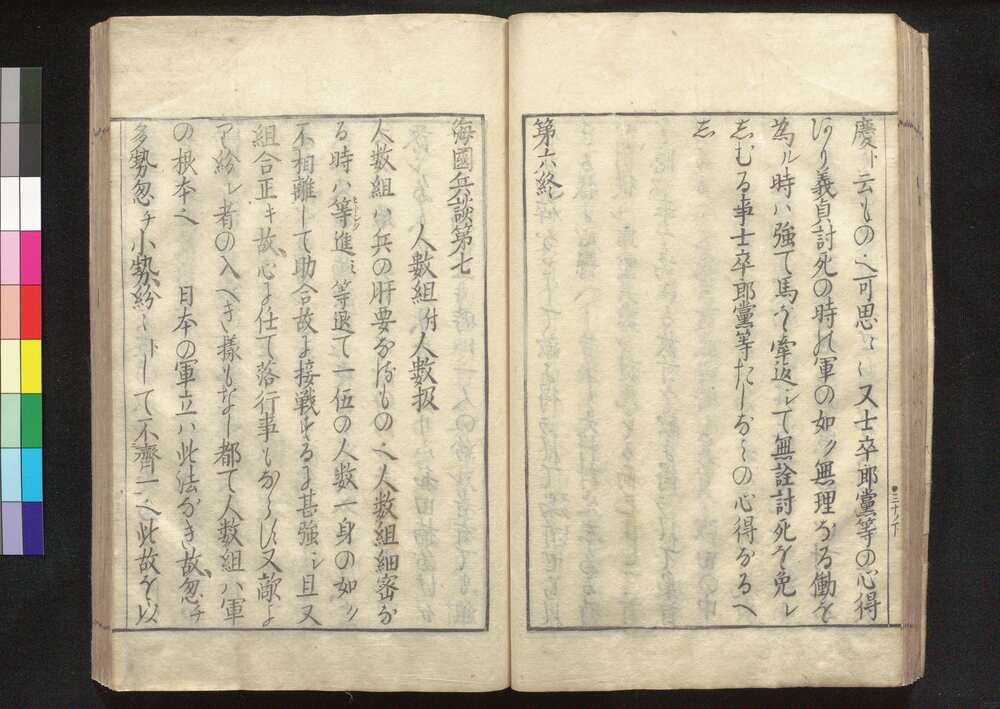 慶ト云もの也可思ミ又士卒郎黨等の心得
あり義貞討死の時れ軍の如ク無理なる働を
為ル時ハ強て馬を牽返シて無詮討死を免レ
しむる事士卒郎黨等たしなミの心得なるへ
し
第六終
三十ノ下
海國兵談第七
人数組附人数扱
人数組ハ兵の肝要なるもの也人数組細密な
る時ハ等進ミ等退て一伍の人数一身の如ク
不相離して助合故よ接戦するよ甚強シ且又
組合正キ故心よ仕て落行事もならす又敵よ
ア紛レ者の入へき様もなし都て人数組ハ軍
の根本也 日本の軍立ハ此法なき故忽チ
多勢忽チ小勢紛々トして不齊一也此故を以